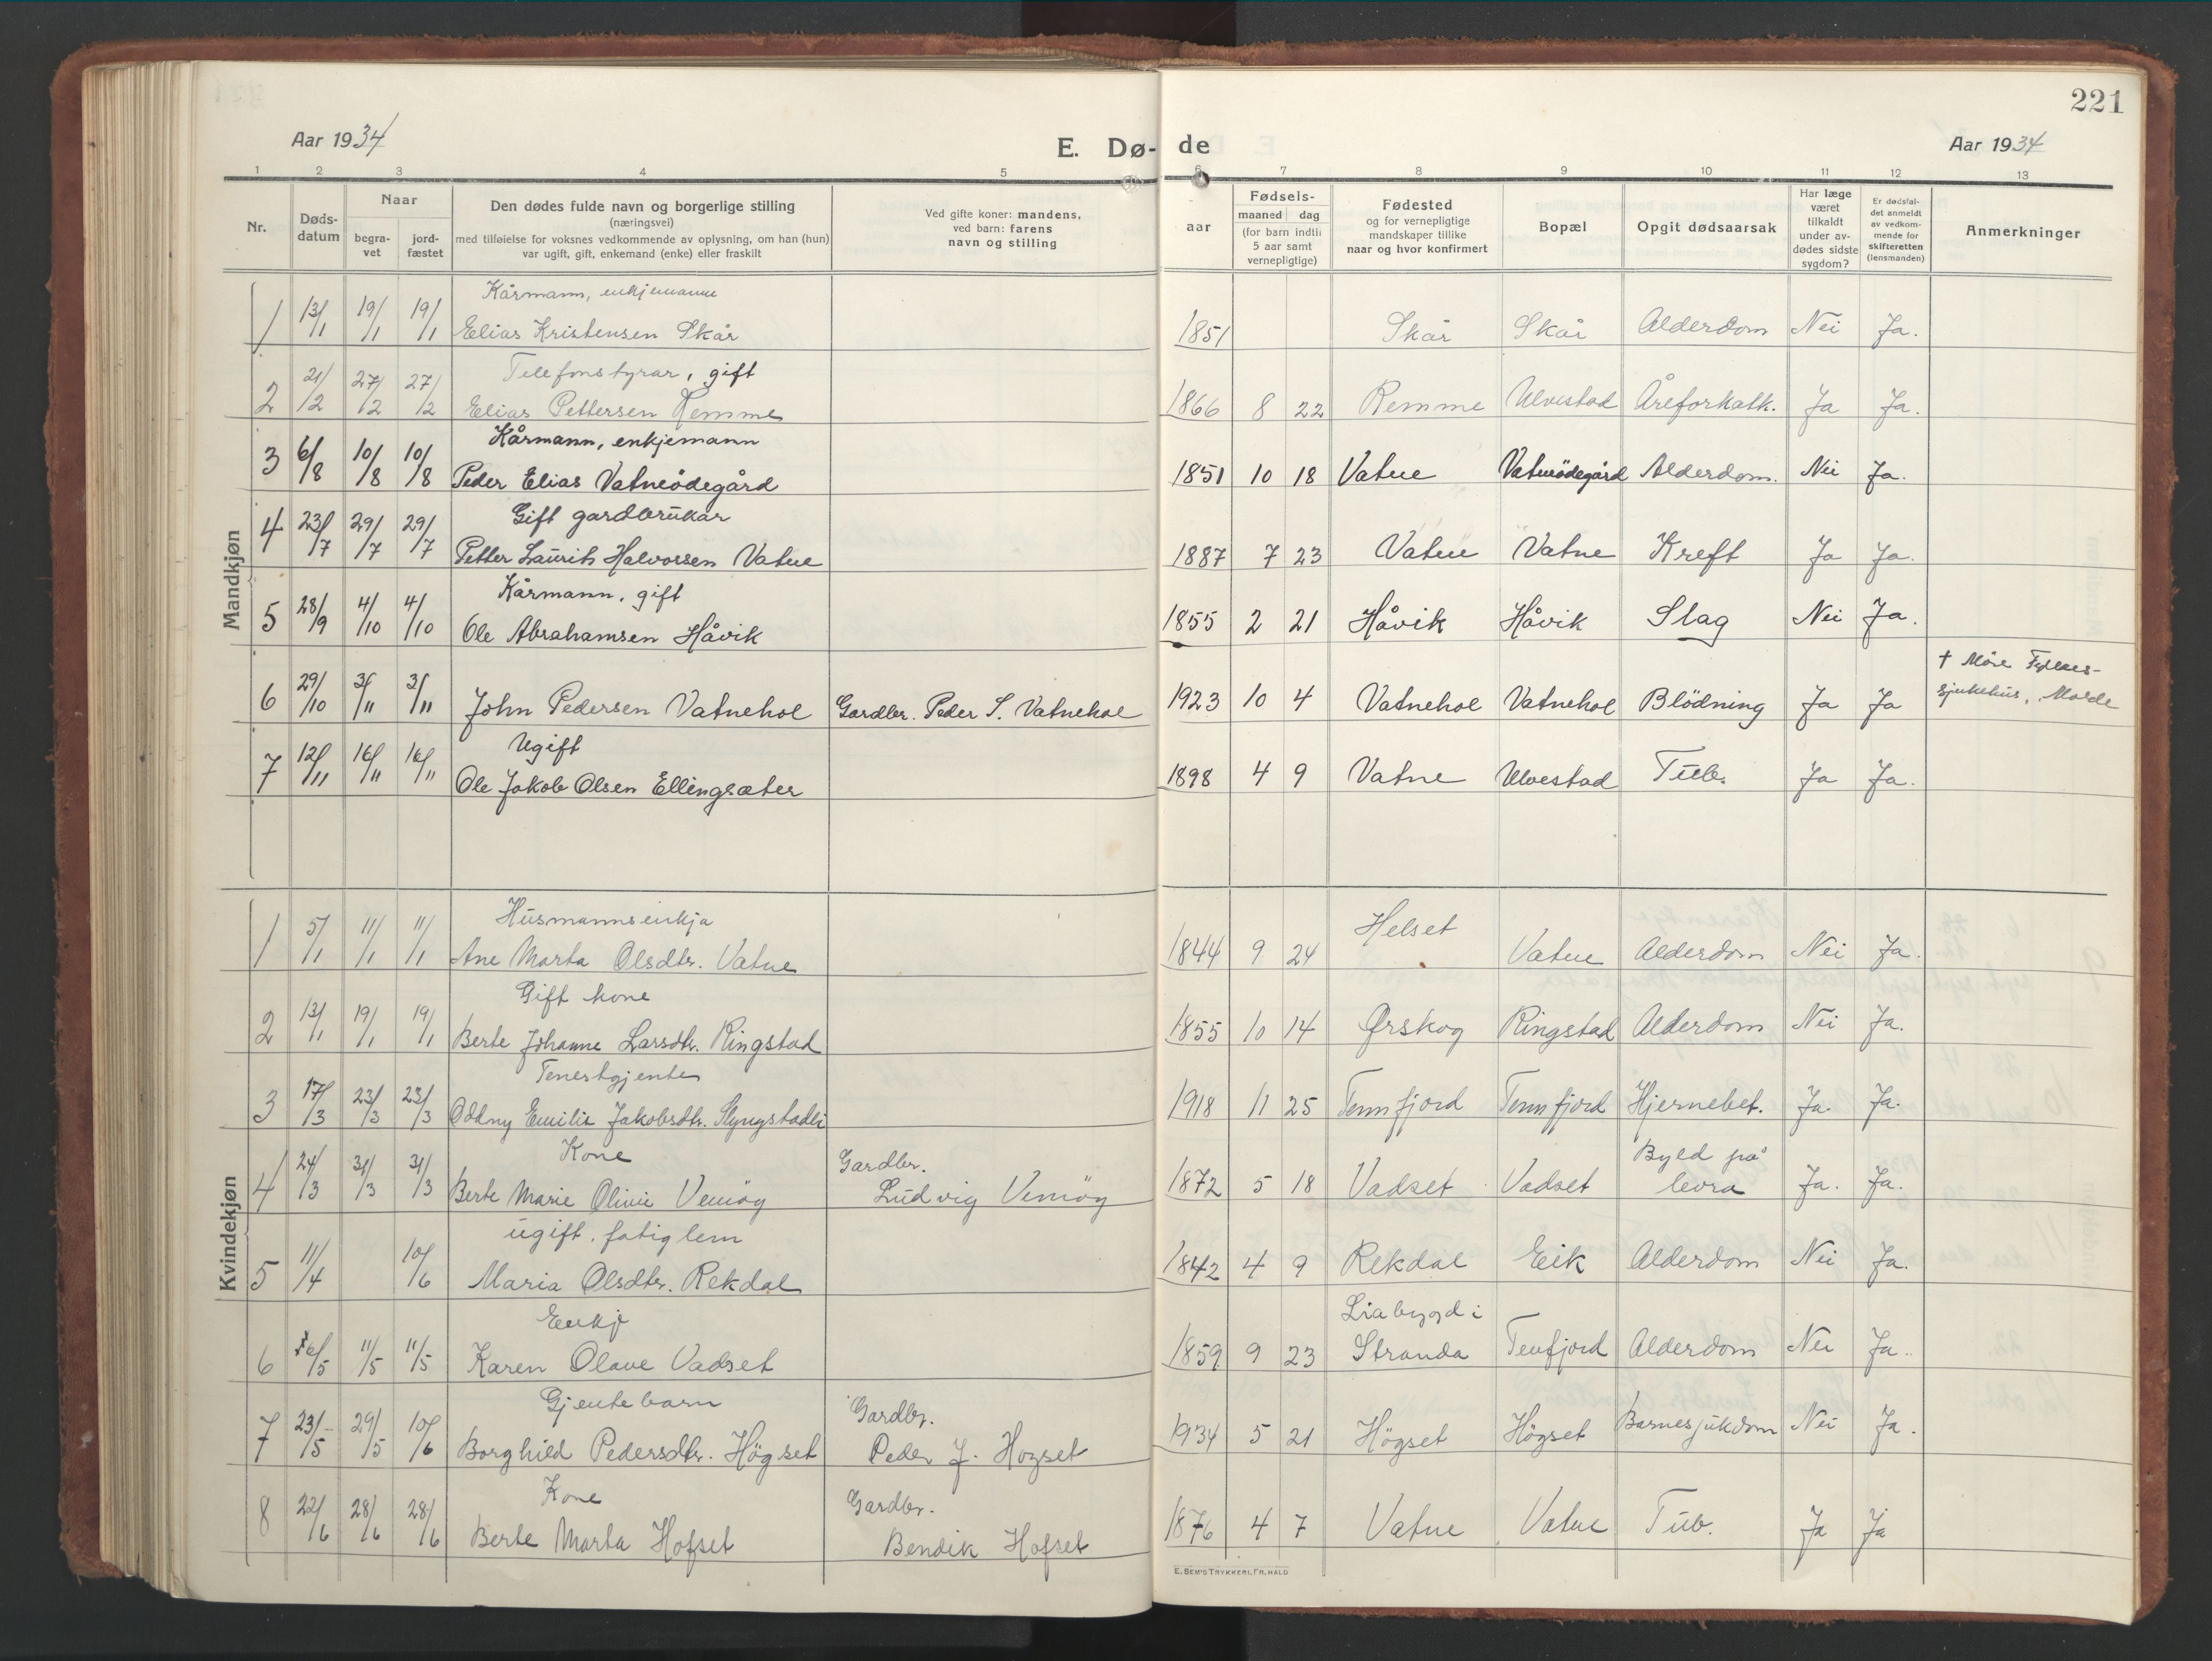 221
Aar 1934
E. Dø-
de
Aar 1934
1 2 3 4 5 6 7 8 9 10 11 12 13
Nr.
Døds-
datum
Naar
begra-
vet
jord-
fæstet
Den dødes fulde navn og borgerlige stilling
(næringsvei)
med tilføielse for voksnes vedkommende av oplysning, om han (hun)
var ugift, gift, enkemand (enke) eller fraskilt
Ved gifte koner: mandens,
ved barn: farens
navn og stilling
aar
Fødsels-
maaned dag
(for barn indtil
5 aar samt
vernepligtige)
Fødested
og for vernepligtige
mandskaper tillike
naar og hvor konfirmert
Bopæl
Opgit dødsaarsak
Har læge
været
tilkaldt
under av-
dødes sidste
sygdom?
Er dødsfal-
det anmeldt
av vedkom-
mende for
skifteretten
(lensmanden)
Anmerkninger
Mandkjøn
Kårmann, enkjemann
1 13/1 19/1 19/1 Elias Kristensen Skår 1851 Skår Skår Alderdom Nei Ja.
Telefonstyrar, gift
2 21/2 27/2 27/2 Elias Pettersen Remme 1866 8 22 Remme Ulvestad Åreforkalk. Ja Ja.
Kårmann, enkjemann
3 6/8 10/8 10/8 Peder Elias Vatneödegård 1851 10 18 Vatne Vatneödegård Alderdom. Nei Ja.
Gift gardbrukar
4 23/7 29/7 29/7 Petter Laurits Halvorsen Vatne 1887 7 23 Vatne Vatne Kreft Ja Ja.
Kårmann, gift
5 28/9 4/10 4/10 Ole Abrahamsen Håvik 1855 2 21 Håvik Håvik Slag Nei Ja.
† Möre Fylkes-
sjukehus, Molde
6 29/10 3/11 3/11 John Pedersen Vatnehol Gardbr. Peder S. Vatnehol 1923 10 4 Vatnehol Vatnehol Blödning Ja Ja
Ugift
7 12/11 16/11 16/11 Ole Jakob Olsen Ellingsæter 1898 4 9 Vatne Ulvestad Tub. Ja Ja.
Kvindekjøn
Husmannsenkja
1 5/1 11/1 11/1 Ane Marta Olsdtr. Vatne 1844 9 24 Helset Vatne Alderdom Nei Ja.
Gift kone
2 13/1 19/1 19/1 Berte Johanne Larsdtr. Ringstad 1855 10 14 Ørskog Ringstad Alderdom Nei Ja.
Tenestgjente
3 17/3 23/3 23/3 Oddny Emilie Jakobsdtr. Slyngstadli 1918 11 25 Tennfjord Tennfjord Hjernebet. Ja. Ja.
Kone Gardbr. Byld på
4 24/3 31/3 31/3 Berte Marie Olivie Vemöy Ludvig Vemöy 1872 5 18 Vadset Vadset levra Ja. Ja.
ugift, fatiglem
5 11/4 10/6 Maria Olsdtr. Rekdal 1842 4 9 Rekdal Eik Alderdom Nei Ja.
Enkje Liabygd i
6 6/5 11/5 11/5 Karen Olave Vadset 1859 9 23 Stranda Tenfjord Alderdom Nei Ja.
Gjentebarn Gardbr.
7 23/5 29/5 10/6 Borghild Pedersdtr. Högset Peder J. Hogset 1934 5 21 Högset Högset Barnesjukdom Nei Ja.
Kone Gardbr.
8 22/6 28/6 28/6 Berte Marta Hofset Bendik Hofset 1876 4 7 Vatne Vatne Tub. Ja Ja
E. SEM'S TRYKKERI, FR.HALD